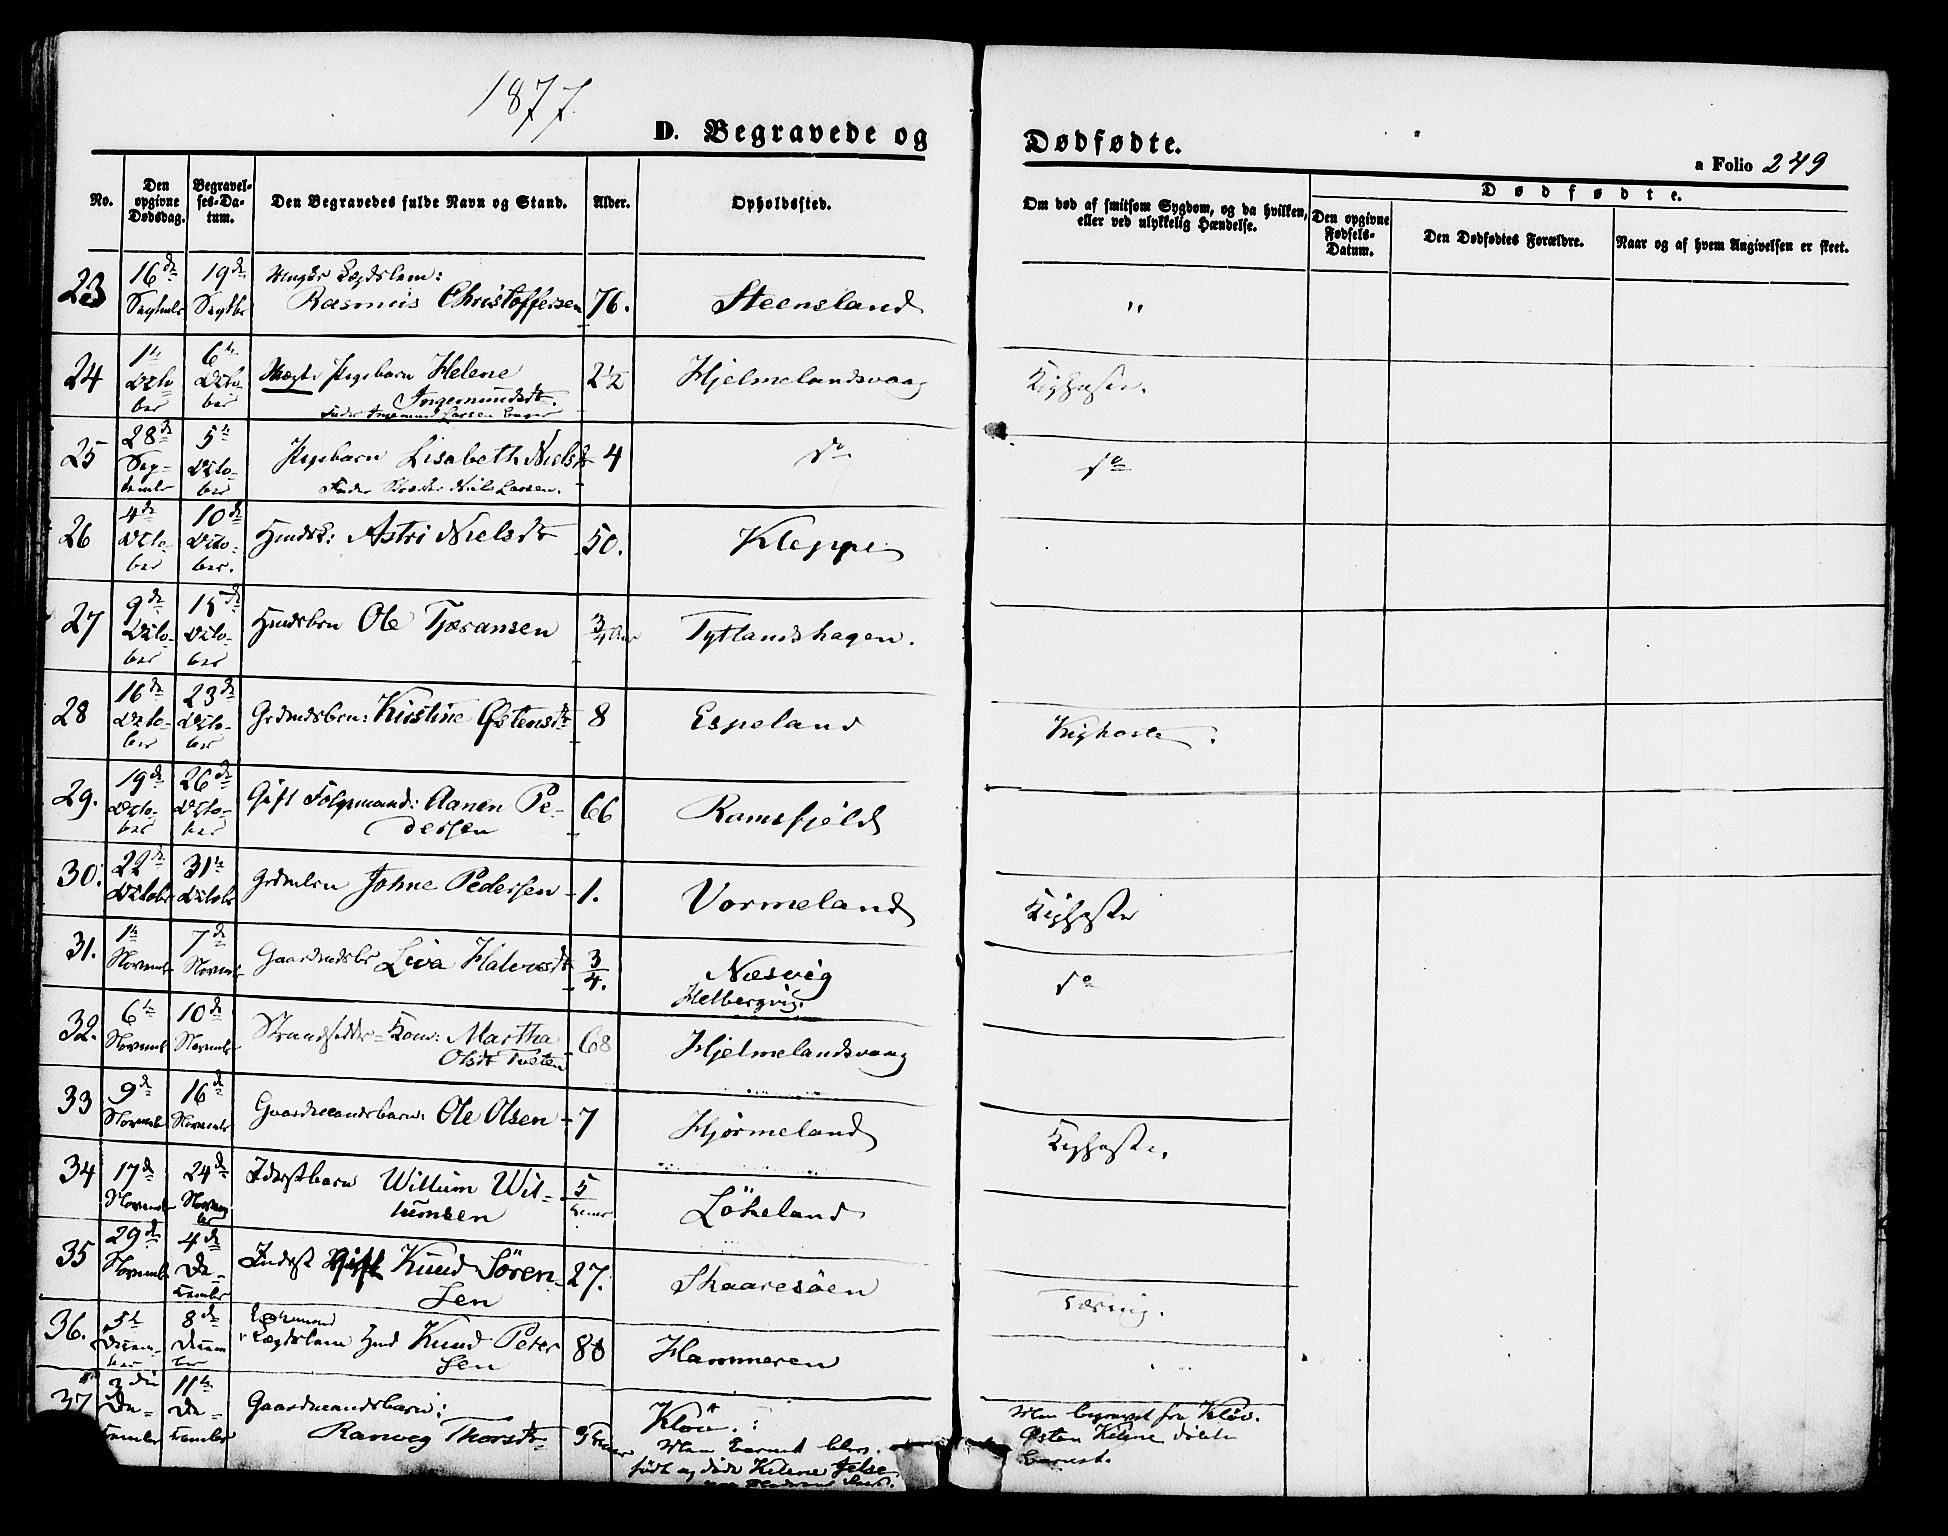 1877.
D. Begravede og Dødfødte.
a Folio 249
No.
Den opgivne Dødsdag.
Begravelses-Datum.
Den Begravedes fulde Navn og Stand.
Alder.
Opholdssted.
Om død af smitsom Sygdom, og da hvilken, eller ved ulykkelig Hændelse.
Dødfødte.
Den opgivne Fødsels-Datum.
Den Dødfødtes Forældre.
Naar og af hvem Angivelsen er skeet.
23 16de Septmbr 19de Septbr Lægdslem: Rasmus Christoffersen 76. Steensland "
24 1te Octo-ber 6te Octo-ber Pigebarn Helene Ingemundsdtr. 2½ Hjelmelandsvaag Kighoste.
25 28de Sep-tembr 5te Octo-ber Pigebarn Lisabeth Nielsdtr 4 do do
Niels Larsen.
26 4de Octo-ber 10de Octo-ber. Astri Nielsdtr 50. Kleppe
27 9de Octo-ber 15de Octo-ber Ole Tjæransen ¾ Aar Tytlandshagen.
28 16de Octo-ber 23de Octo-ber Kirstine Østensdtr 8 Espeland Kighoste.
29. 19de Octo-ber 26de Octo-ber Gift Folgemand: Aanen Pe-dersen 66 Ramsfjeld
30. 22de Octobr 31te Octobr Johne Pedersen 1. Vormeland Kighoste
31. 1te Novembr 7de Novembr Liva Halvorsdtr ¾. Næsvig Helbergvig. do
32. 6te Novembr 10de Novembr Strandsidder-Kone: Martha Olsdtr Tveten 68 Hjelmelandsvaag
33 9de Novembr 16de Novembr Gaardmandsbarn: Ole Olsen 7 Hjørmeland Kighoste.
34 17de Novembr 24de Novem-ber Inderstbarn Willum Wil-lumsen 5 Løkeland
35 29de Novembr 4de De-cembr Inderst Gift Knud Sören-sen 27. Skaaresöen Tæring.
36. 5te Decem-ber 8de Decem-ber Lægdslem Knud Peter-sen 80 Hammeren
37 De-cembr 11te De-cembr Gaardmandsbarn: Ranveg Thorsdtr Klöv.:
født og døde Helene Jelse
begravet fra Kløv.
Østen Helene døbte
Barnet.